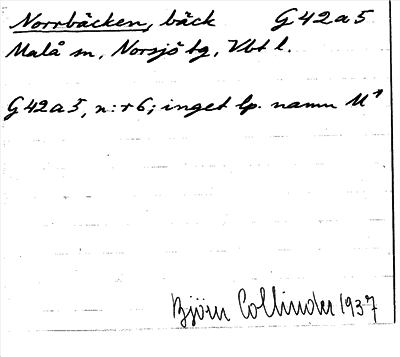 Norrbäcken, bäck G42a5
Malå sn, Norsjö tg, Vbt l.
G42a5, n:r6; inget lp. namn
Björn Collinder 1937